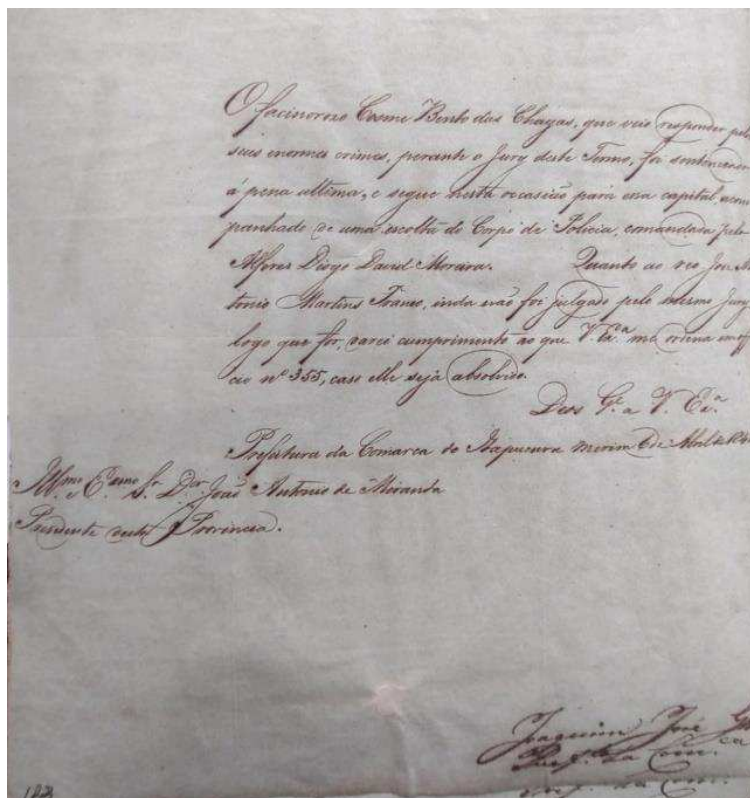 O facinorozo Cosme Bento das Chagas, que veio responder pelos
seus enormes crimes, perante o Jury deste Termo, foi sentenciado
á pena ultima, e segue nesta occasião para essa capital, acom
panhado de uma escolta do Corpo de Policia, comandada pelo
Alferes Diogo David Moreira. Quanto ao reo José An
tonio Martins Franco, inda não foi julgado pelo mesmo Jury
logo que for, darei cumprimento ao que V. Exa. me ordena em offi
cio nº 355, caso elle seja absolvido.
Deos Ge. a V. Exa.
Prefeitura da Comarca do Itapucurú merim 6 de Abril de
Illmo. e Exmo. Sr. Dor. João Antonio de Miranda
Presidente desta Provincia.
Joaquim José
Prefo. da Coma.